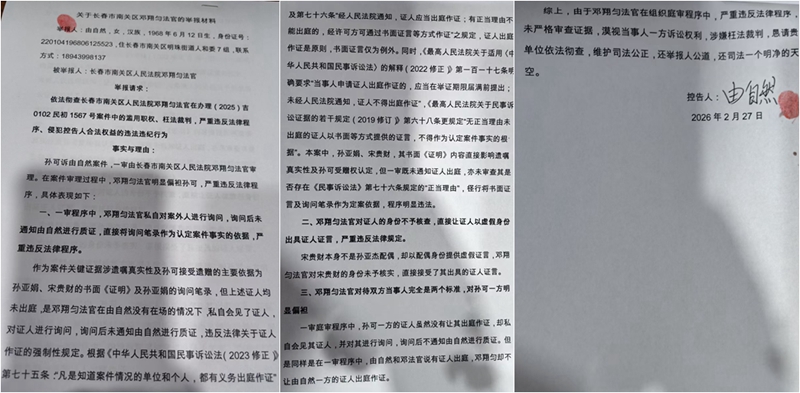 关于长春市南关区邓翔匀法官的举报材料
举报人:由自然,女,汉族,1968年6月12日生,身份证号:
220104196806125523,住长春市南关区明珠街道人和委7组,联系
方式:18943998137
被举报人:长春市南关区人民法院邓翔匀法官
举报请求:
依法彻查长春市南关区人民法院邓翔匀法官在办理(2025)吉
0102民初1567号案件中的滥用职权、枉法裁判,严重违反法律程
序、侵犯控告人合法权益的违法违纪行为
事实与理由:
孙可诉由自然案件,一审由长春市南关区人民法院邓翔匀法官审
理。在案件审理过程中,邓翔匀法官明显偏袒孙可,严重违反法律程
序,具体表现如下:
一、一审程序中,邓翔匀法官私自对案外人进行询问,询问后未
通知由自然进行质证,直接将询问笔录作为认定案件事实的依据,严
重违反法律程序。
作为案件关键证据涉遗嘱真实性及孙可接受遗赠的主要依据为
孙亚娟、宋贵财的书面《证明》及孙亚娟的询问笔录,但上述证人均
未出庭,是邓翔匀法官在由自然没有在场的情况下,私自会见了证人,
对证人进行询问,询问后未通知由自然进行质证,违反法律关于证人
作证的强制性规定。根据《中华人民共和国民事诉讼法(2023修正)》
第七十五条:“凡是知道案件情况的单位和个人,都有义务出庭作证”
及第七十六条“经人民法院通知,证人应当出庭作证;有正当理由不
能出庭的,经许可方可通过书面证言等方式作证”之规定,证人出庭
作证是原则,书面证言仅为例外。同时,《最高人民法院关于适用〈中
华人民共和国民事诉讼法〉的解释(2022修正)》第一百一十七条明
确要求“当事人申请证人出庭作证的,应当在举证期限届满前提出;
未经人民法院通知,证人不得出庭作证”,《最高人民法院关于民事诉
讼证据的若干规定(2019修订)》第六十八条更规定“无正当理由未
出庭的证人以书面等方式提供的证言,不得作为认定案件事实的根
据”。本案中,孙亚娟、宋贵财,其书面《证明》内容直接影响遗嘱
真实性及孙可受赠权认定,但一审既未通知证人出庭,亦未审查其是
否存在《民事诉讼法》第七十六条规定的“正当理由”,径行将书面证
言及询问笔录作为定案依据,程序明显违法。
二、邓翔匀法官对证人的身份不予核查,直接让证人以虚假身份
出具证人证言,严重违反法律规定。
宋贵财本身不是孙亚杰配偶,却以配偶身份提供虚假证言,邓翔
匀法官对宋贵财的身份未予核实,直接接受了其出具的证人证言。
三、邓翔匀法官对待双方当事人完全是两个标准,对孙可一方明
显偏袒
一审庭审程序中,孙可一方的证人虽然没有让其出庭作证,却私
自会见其证人,并对其进行询问,询问后未通知由自然进行质证。但
是同样是在一审程序中,由自然和邓法官说有证人出庭,邓翔匀却不
让由自然一方的证人出庭作证。
综上,由于邓翔匀法官在组织庭审程序中,严重违反法律程序,
未严格审查证据,漠视当事人一方诉讼权利,涉嫌枉法裁判,恳请贵
单位依法彻查,维护司法公正,还举报人公道,还司法一个明净的天
空。
控告人:由自然
2026年2月27日